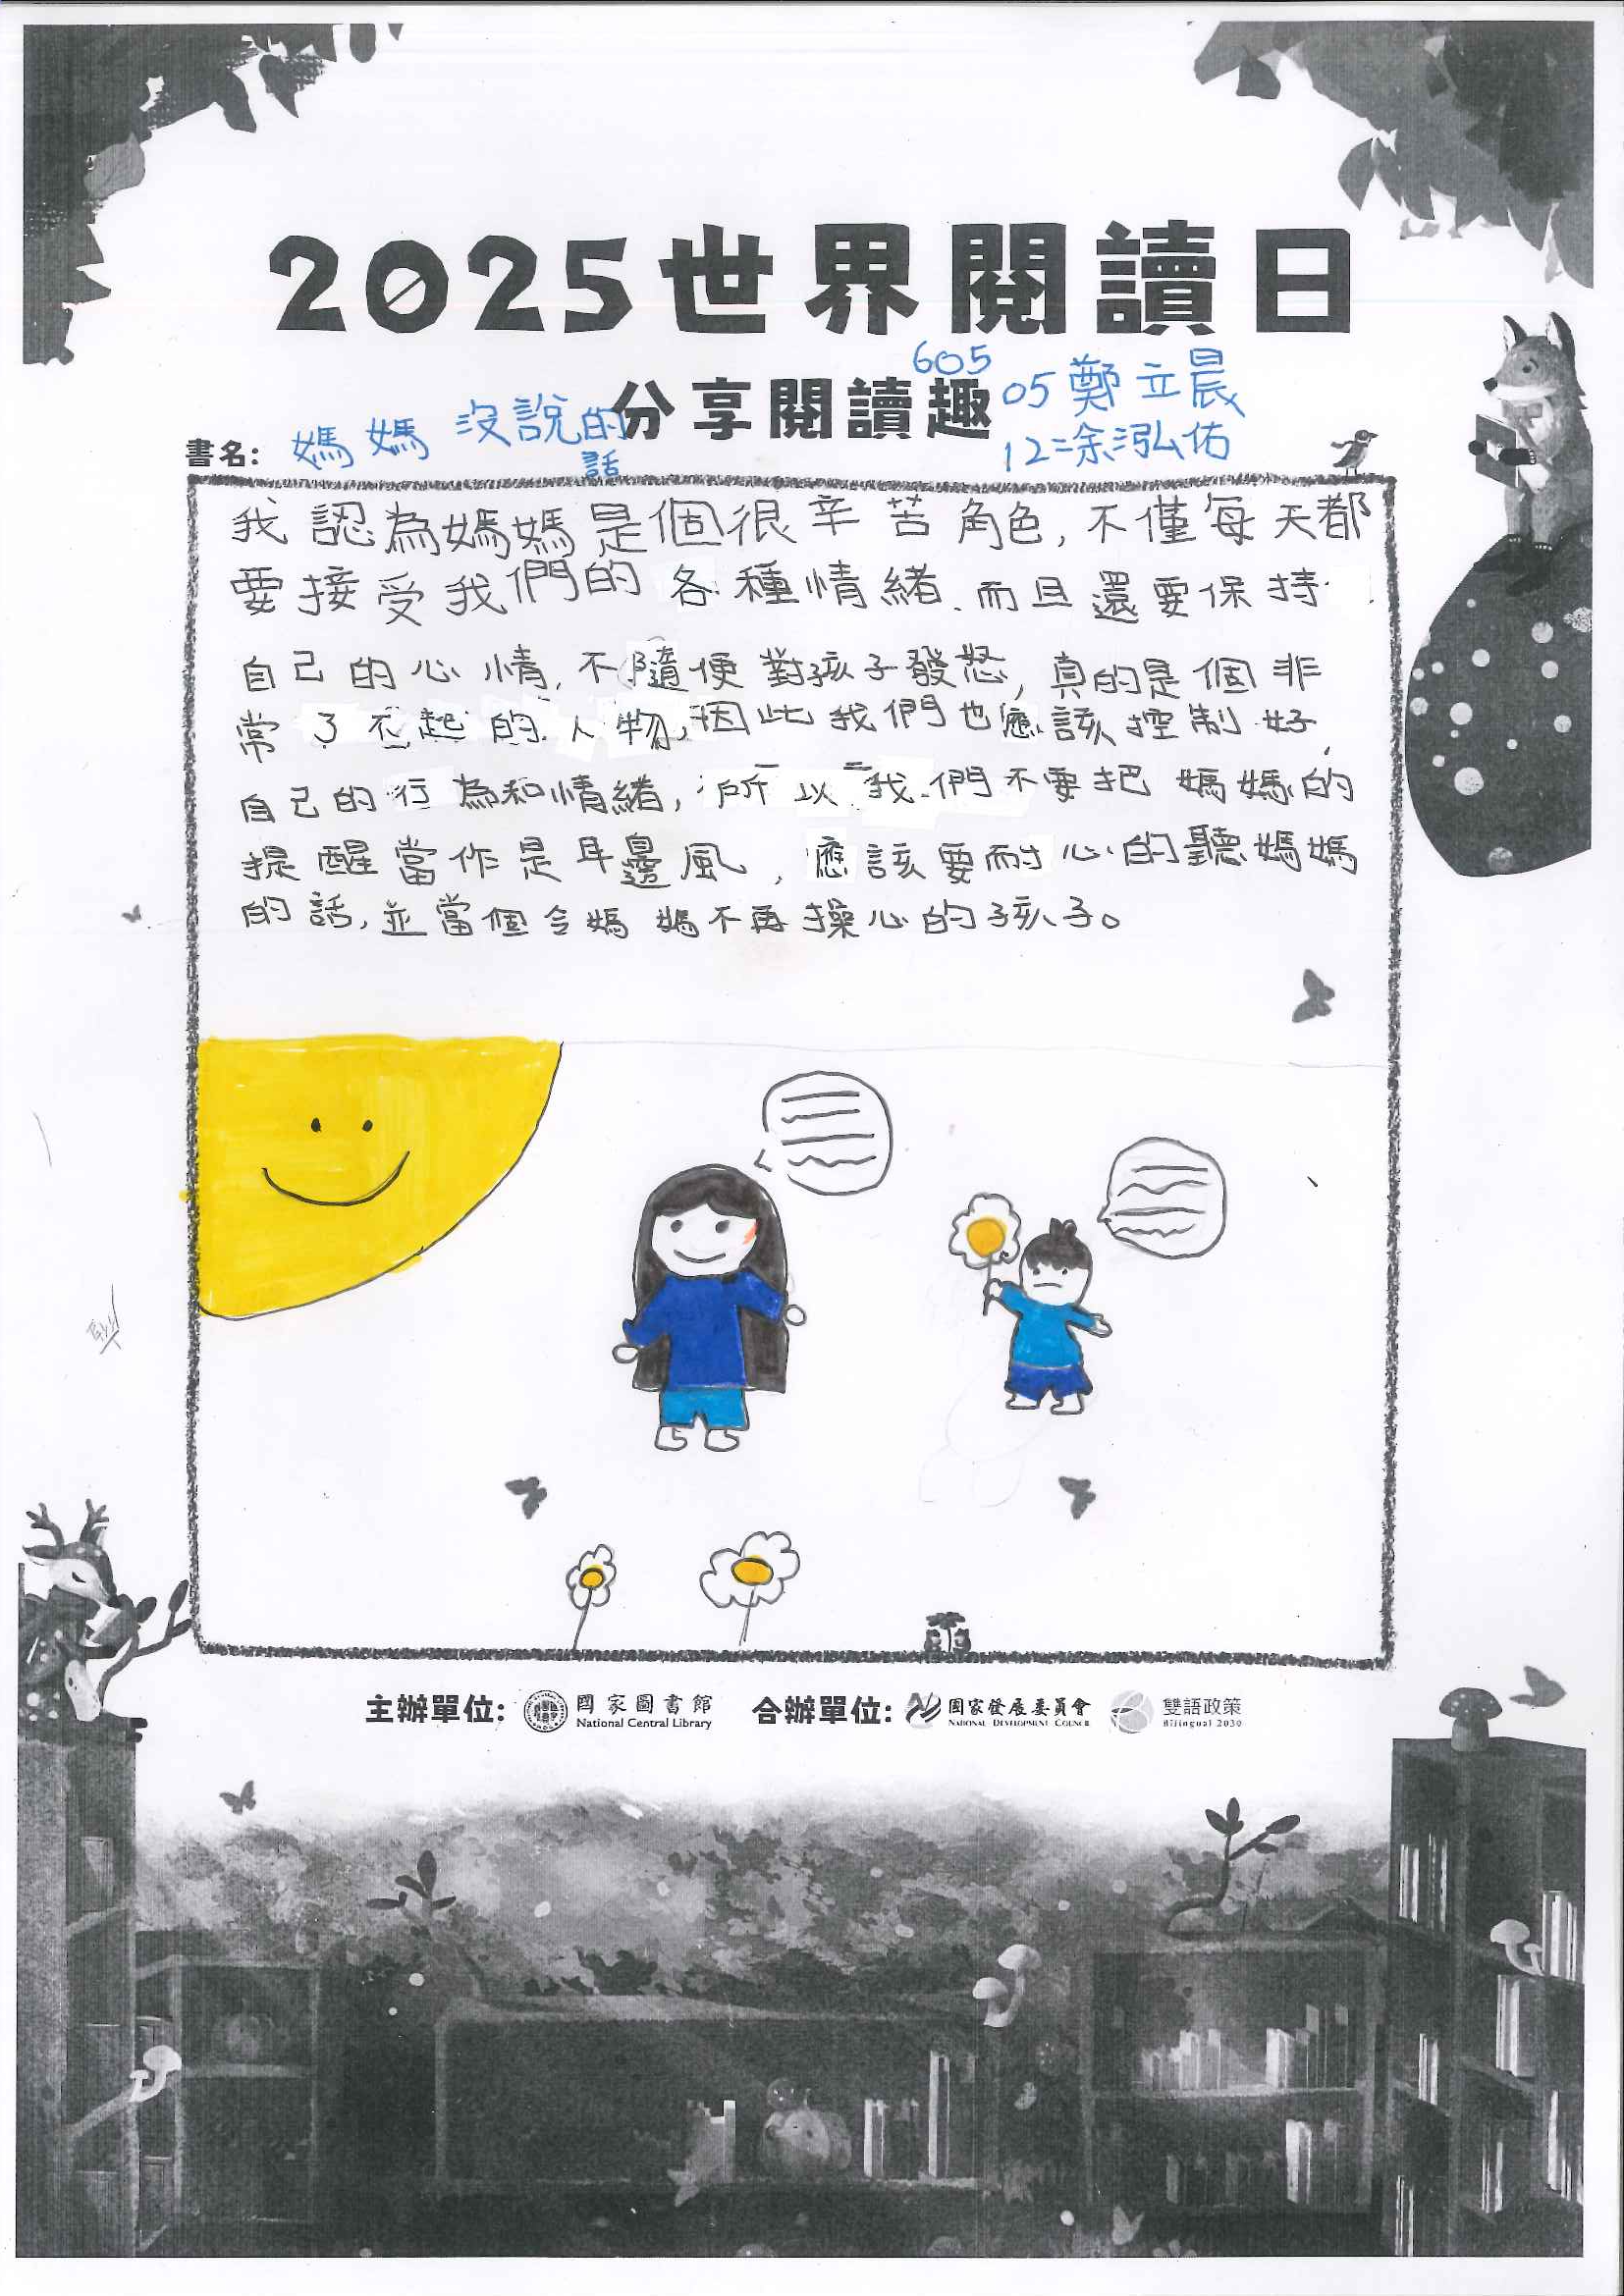 2025世界閱讀日
分享閱讀趣
605
05鄭立晨
12涂泓佑
書名：媽媽沒說的話
我認為媽媽是個很辛苦角色,不僅每天都
要接受我們的各種情緒、而且還要保持
自己的心情,不隨便對孩子發怒,真的是個非
常了不起的人物,因此我們也應該控制好
自己的行為和情緒,所以我們不要把媽媽的
提醒當作是耳邊風,應該要耐心的聽媽媽
的話,並當個令媽媽不再操心的孩子。
主辦單位: 國家圖書館 National Central Library 合辦單位: 國家發展委員會 NATIONAL DEVELOPMENT COUNCIL 雙語政策 Bilingual 2030